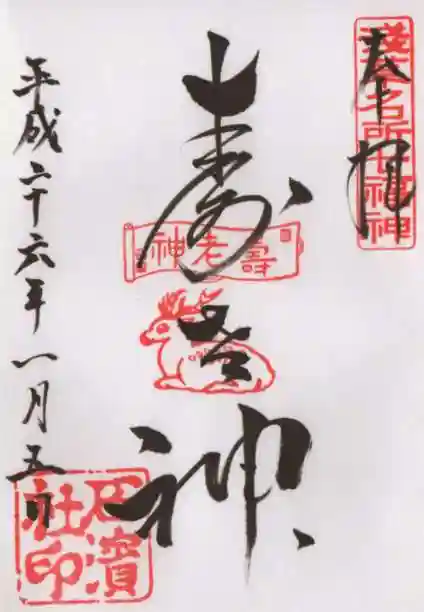 奉拝
浅草名所七福神
寿老神
壽老神
平成二十六年一月五日
石濱
社印